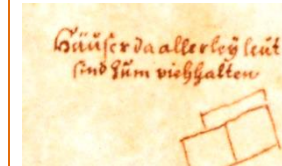 Häüser da allerleÿ leüt
sind zum viehhalten